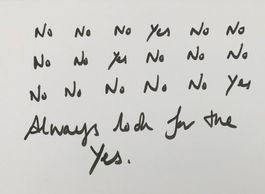 No No No Yes No No
No No Yes No No No
No No No No No Yes
Always look for the
Yes.